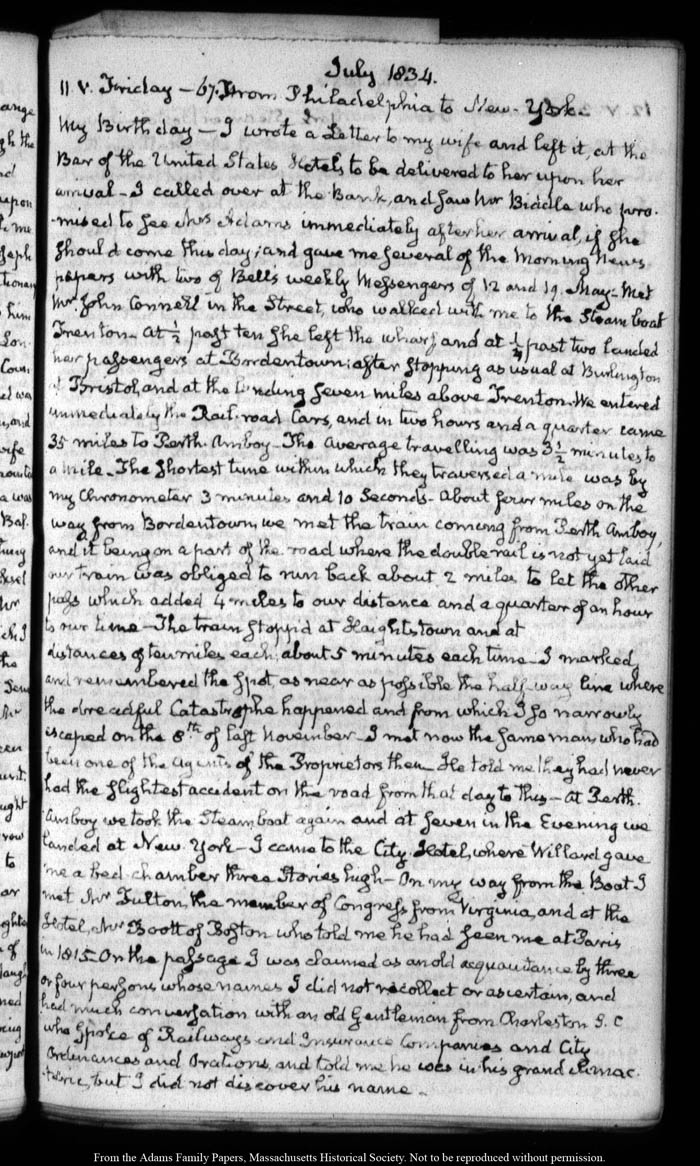 July 1834.
11. V. Friday — 67. From Philadelphia to New-York.
My Birth day — I wrote a Letter to my wife and left it, at the
Bar of the United States Hotel, to be delivered to her upon her
arrival — I called over at the Bank, and saw Mr Biddle who pro-
-mised to see Mrs Adams immediately after her arrival, if she
should come this day; and gave me several of the Morning News
papers with two of Bell's weekly Messengers of 12 and 19. May — Met
Mr John Connell in the Street, who walked with me to the Steam boat
Trenton — At ½ past ten she left the wharf and at ¼ past two landed
her passengers at Bordentown: after stopping as usual at Burlington
at Bristol, and at the landing seven miles above Trenton. We entered
immediately the Rail-road Cars, and in two hours and a quarter came
35 miles to Perth-Amboy — The average travelling was 3½ minutes to
a mile — The shortest time within which they traversed a mile was by
my Chronometer 3 minutes and 10 Seconds — About four miles on the
way from Bordentown, we met the train coming from Perth Amboy,
and it being on a part of the road where the double rail is not yet laid
our train was obliged to run back about 2 miles to let the other
pass which added 4 miles to our distance and a quarter of an hour
to our time — The train stopp'd at Haightstown and at
distances of ten miles each, about 5 minutes each time — I marked,
and remembered the spot, as near as possible the half-way line where
the dreadful Catastrophe happened and from which I so narrowly
escaped on the 8th of last November — I met now the same man who had
been one of the agents of the Proprietors then — He told me they had never
had the slightest accident on the road from that day to this — At Perth
Amboy we took the Steam boat again and at seven in the Evening we
landed at New-York — I came to the City Hotel, where Willard gave
me a bed-chamber three Stories high — On my way from the Boat I
met Mr Fulton, the member of Congress from Virginia, and at the
Hotel, Mr Boott of Boston who told me he had seen me at Paris
in 1815 — On the passage I was claimed as an old acquaintance by three
or four persons whose names I did not recollect or ascertain, and
had much conversation with an old Gentleman from Charleston S. C
who spoke of Railways and Insurance Companies and City
Ordinances and Orations, and told me he was in his grand climac-
-teric, but I did not discover his name —
From the Adams Family Papers, Massachusetts Historical Society. Not to be reproduced without permission.